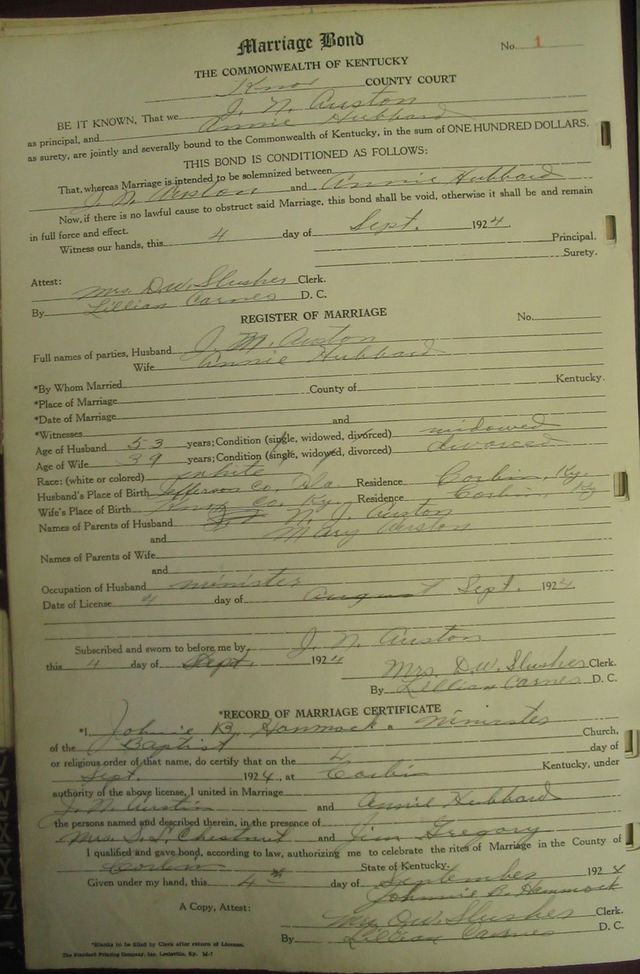 Marriage Bond
No. 1
THE COMMONWEALTH OF KENTUCKY
Knox COUNTY COURT
BE IT KNOWN, That we J. N. Auston
as principal, and Annie Hubbard
as surety, are jointly and severally bound to the Commonwealth of Kentucky, in the sum of ONE HUNDRED DOLLARS.
THIS BOND IS CONDITIONED AS FOLLOWS:
That, whereas Marriage is intended to be solemnized between
J. N. Auston and Annie Hubbard
Now, if there is no lawful cause to obstruct said Marriage, this bond shall be void, otherwise it shall be and remain
in full force and effect.
Witness our hands, this 4 day of Sept. 1924.
Principal.
Surety.
Attest:
Mrs. D.W. Slusher Clerk.
By Lillian Carnes D. C.
REGISTER OF MARRIAGE No.
Full names of parties, Husband J. N. Auston
Wife Annie Hubbard
*By Whom Married
*Place of Marriage County of Kentucky.
*Date of Marriage
*Witnesses and
Age of Husband 53 years; Condition (single, widowed, divorced) widowed
Age of Wife 39 years; Condition (single, widowed, divorced) divorced
Race: (white or colored) white
Husband's Place of Birth Jefferson Co., Residence Corbin, Ky.
Wife's Place of Birth Knox Co. Ky. Residence Corbin, Ky
Names of Parents of Husband N. J. Auston
and Mary Auston
Names of Parents of Wife
and
Occupation of Husband minister
Date of License 4 day of August Sept. 1924
Subscribed and sworn to before me by J. N. Auston
this 4 day of Sept. 1924
Mrs D.W. Slusher Clerk.
By Lillian Carnes D. C.
*RECORD OF MARRIAGE CERTIFICATE
*I Johnie B. Hammock a Minister
of the Baptist Church,
or religious order of that name, do certify that on the 4 day of
Sept. 1924, at Corbin Kentucky, under
authority of the above license, I united in Marriage
J. N. Austin and Annie Hubbard
the persons named and described therein, in the presence of
Mrs S. L. Chestnut and Jim Gregory
I qualified and gave bond, according to law, authorizing me to celebrate the rites of Marriage in the County of
Corbin State of Kentucky.
Given under my hand, this 4th day of September 1924
Johnnie B. Hammock
A Copy, Attest: Mrs D.W. Slusher Clerk.
By Lillian Carnes D. C.
*Blanks to be filled by Clerk after return of License.
The Standard Printing Company, Inc. Louisville, Ky. M-1